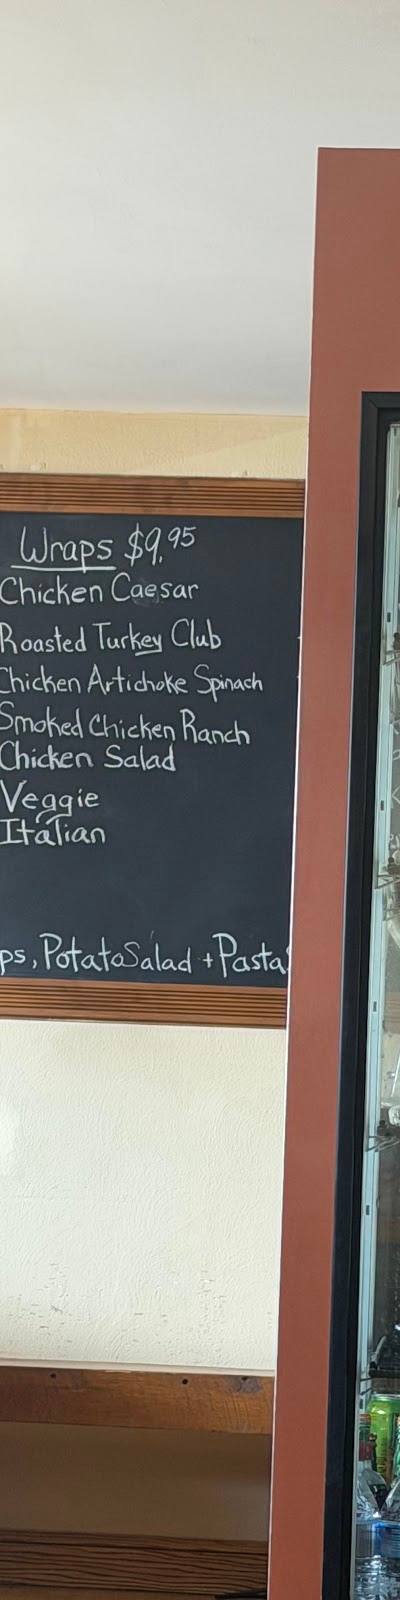 Wraps $9.95
Chicken Caesar
Roasted Turkey Club
Chicken Artichoke Spinach
Smoked Chicken Ranch
Chicken Salad
Veggie
Italian
ps, Potato Salad + Pasta